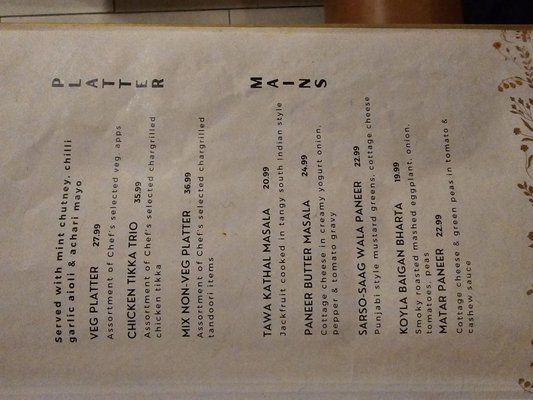 PLATTER
Served with mint chutney, chilli
garlic aioli & achari mayo
VEG PLATTER 27.99
Assortment of Chef's selected veg. apps
CHICKEN TIKKA TRIO 35.99
Assortment of Chef's selected chargrilled
chicken tikka
MIX NON-VEG PLATTER 36.99
Assortment of Chef's selected chargrilled
tandoori items
MAINS
TAWA KATHAL MASALA 20.99
Jackfruit cooked in tangy south Indian style
PANEER BUTTER MASALA 24.99
Cottage cheese in creamy yogurt onion,
pepper & tomato gravy
SARSO-SAAG WALA PANEER 22.99
Punjabi style mustard greens, cottage cheese
KOYLA BAIGAN BHARTA 19.99
Smoky roasted mashed eggplant, onion,
tomatoes, peas
MATAR PANEER 22.99
Cottage cheese & green peas in tomato &
cashew sauce